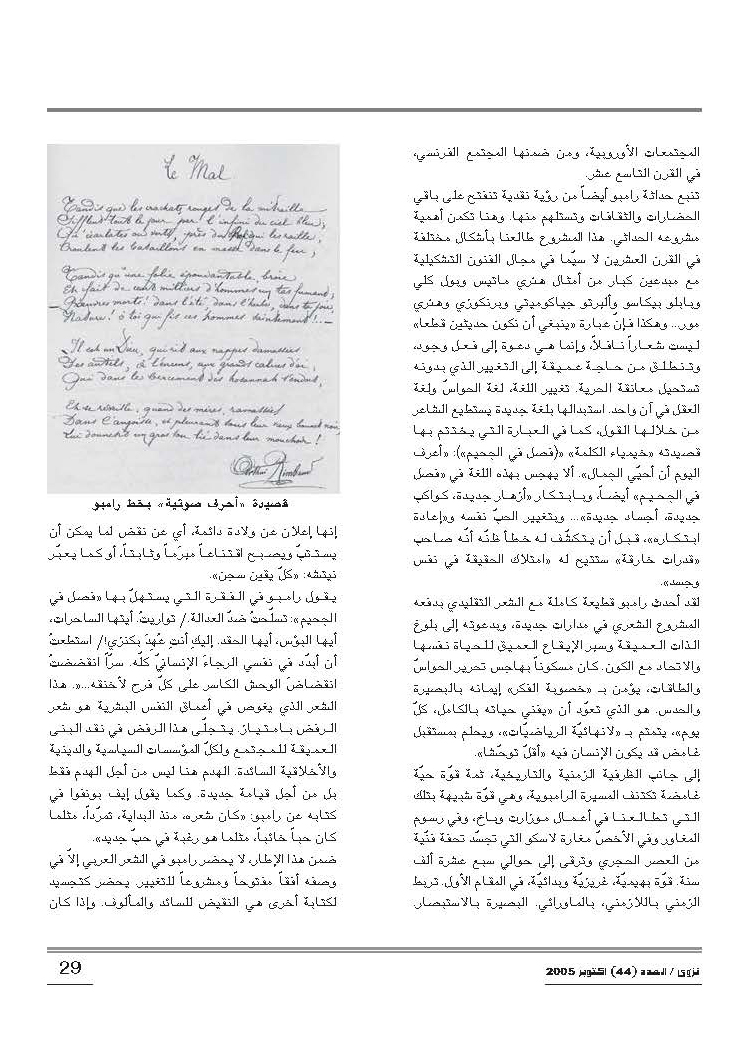 المجتمعات الأوروبية، ومن ضمنها المجتمع الفرنسي،
في القرن التاسع عشر.
تنبع حداثة رامبو أيضاً من رؤية نقدية تنفتح على باقي
الحضارات والثقافات وتستلهم منها. وهنا تكمن أهمية
مشروعه الحداثي. هذا المشروع طالعنا بأشكال مختلفة
في القرن العشرين لا سيّما في مجال الفنون التشكيلية
مع مبدعين كبار من أمثال هنري ماتيس وبول كلي
وبابلو بيكاسو وألبرتو جياكوميتي وبرنكوزي وهنري
مور... وهكذا فإنّ عبارة «ينبغي أن نكون حديثين قطعا»
ليست شعاراً ناقلاً، وإنما هي دعوة إلى فعل وجود،
وتنطلق من حاجة عميقة إلى التغيير الذي بدونه
تستحيل معانقة الحرية. تغيير اللغة، لغة الحواسّ ولغة
العقل في آن واحد. استبدالها بلغة جديدة يستطيع الشاعر
من خلالها القول، كما في العبارة التي يختتم بها
قصيدته «خيمياء الكلمة» «(فصل في الجحيم»): «أعرف
اليوم أن أحيّي الجمال». ألا يهجس بهذه اللغة في «فصل
في الجحيم» أيضاً، وبابتكار «أزهار جديدة، كواكب
جديدة، أجساد جديدة»... وبتغيير الحبّ نفسه و«إعادة
ابتكاره»، قبل أن يتكشّف له خطأ ظنّه أنّه صاحب
«قدرات خارقة» ستتيح له «امتلاك الحقيقة في نفس
وجسد».
لقد أحدث رامبو قطيعة كاملة مع الشعر التقليدي بدفعه
المشروع الشعري في مدارات جديدة، وبدعوته إلى بلوغ
الذات العميقة وسبر الإيقاع العميق للحياة نفسها
والاتحاد مع الكون. كان مسكوناً بهاجس تحرير الحواسّ
والطاقات، يؤمن بـ «خصوبة الفكر» إيمانه بالبصيرة
والحدس. هو الذي تعوّد أن «يفني حياته بالكامل، كلّ
يوم»، يتمتم بـ «لانهائيّة الرياضيّات»، ويحلم بمستقبل
غامض قد يكون الإنسان فيه «أقلّ توحّشا».
إلى جانب الظرفية الزمنية والتاريخية، ثمة قوّة حيّة
غامضة تكتنف المسيرة الرامبوية، وهي قوّة شبيهة بتلك
التي تطالعنا في أعمال موزارت وباخ، وفي رسوم
المغاور وفي الأخصّ مغارة لاسكو التي تجسّد تحفة فنّيّة
من العصر الحجري وترقى إلى حوالي سبع عشرة ألف
سنة. قوّة بهيميّة، غريزيّة وبدائيّة، في المقام الأول. تربط
الزمني باللازمني، بالماورائي. البصيرة بالاستبصار.
Le Mal
Tandis que les crachats rouges de la mitraille
Sifflent tout le jour par l'infini du ciel bleu;
Qu'écarlates ou verts, près du Roi qui les raille,
Croulent les bataillons en masse dans le feu;
Tandis qu'une folie épouvantable, broie
Et fait de cent milliers d'hommes un tas fumant;
—Pauvres morts! dans l'été, dans l'herbe, dans ta joie,
Nature! ô toi qui fis ces hommes saintement!..—
—Il est un Dieu, qui rit aux nappes damassées
Des autels, à l'encens, aux grands calices d'or;
Qui dans le bercement des hosannah s'endort,
Et se réveille, quand des mères, ramassées
Dans l'angoisse, et pleurant sous leur vieux bonnet noir,
Lui donnent un gros sou lié dans leur mouchoir!
Arthur Rimbaud
قصيدة «أحرف صوتية» بخط رامبو
إنها إعلان عن ولادة دائمة، أي عن نقض لما يمكن أن
يستتبّ ويصبح اقتناعاً مبرَماً وثابتاً، أو كما يعبّر
نيتشه: «كلّ يقين سجن».
يقول رامبو في الفقرة التي يستهلّ بها «فصل في
الجحيم»: تسلّحتُ ضدّ العدالة./ تواريتُ. أيتها الساحرات،
أيها البؤس، أيها الحقد. إليكِ أنتِ عُهِدَ بكنزي!/ استطعتُ
أن أبدّد في نفسي الرجاءَ الإنسانيّ كلّه. سرّاً انقضضتُ
انقضاضَ الوحش الكاسر على كلّ فرح لأخنقه...». هذا
الشعر الذي يغوص في أعماق النفس البشرية هو شعر
الرفض بامتياز. يتجلّى هذا الرفض في نقد البنى
العميقة للمجتمع ولكلّ المؤسسات السياسية والدينية
والأخلاقية السائدة. الهدم هنا ليس من أجل الهدم فقط
بل من أجل قيامة جديدة. وكما يقول إيف بونفوا في
كتابه عن رامبو: «كان شعره، منذ البداية، تمرّداً، مثلما
كان حباً خائباً، مثلما هو رغبة في حبّ جديد».
ضمن هذا الإطار، لا يحضر رامبو في الشعر العربي إلاّ في
وصفه أفقاً مفتوحاً ومشروعاً للتغيير. يحضر كتجسيد
لكتابة أخرى هي النقيض للسائد والمألوف. وإذا كان
29
نزوى / العدد (44) اكتوبر 2005